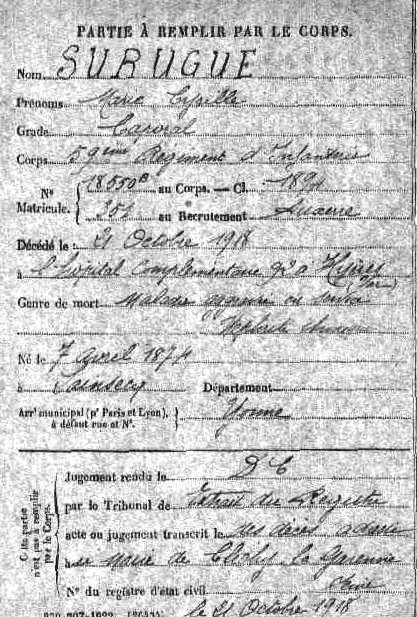 PARTIE À REMPLIR PAR LE CORPS.
Nom SURUGUE
Prénoms Marie Cyrille
Grade Caporal
Corps 59ème Régiment d'Infanterie
N° Matricule. { 18550 au Corps. — Cl. 1894
252 au Recrutement Auxerre
Décédé le 21 Octobre 1918
à l'hôpital Complementaire 92 à Hyères (Var)
Genre de mort Maladie aggravée en service
Néphrite
Né le 7 Avril 1874
à Lainsecq Département
Arr' municipal (p' Paris et Lyon), à défaut rue et N°. } Yonne
Cette partie n'est pas à remplir par le Corps.
Jugement rendu le D C
par le Tribunal de Extrait du Registre
acte ou jugement transcrit le des décès adressé
à Mairie de la Garenne
N° du registre d'état civil
le 21 Octobre 1918